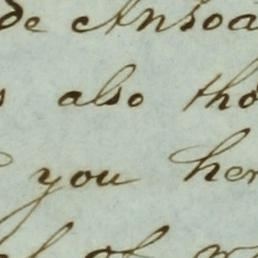 de Ansoa
s also tho
you her
of